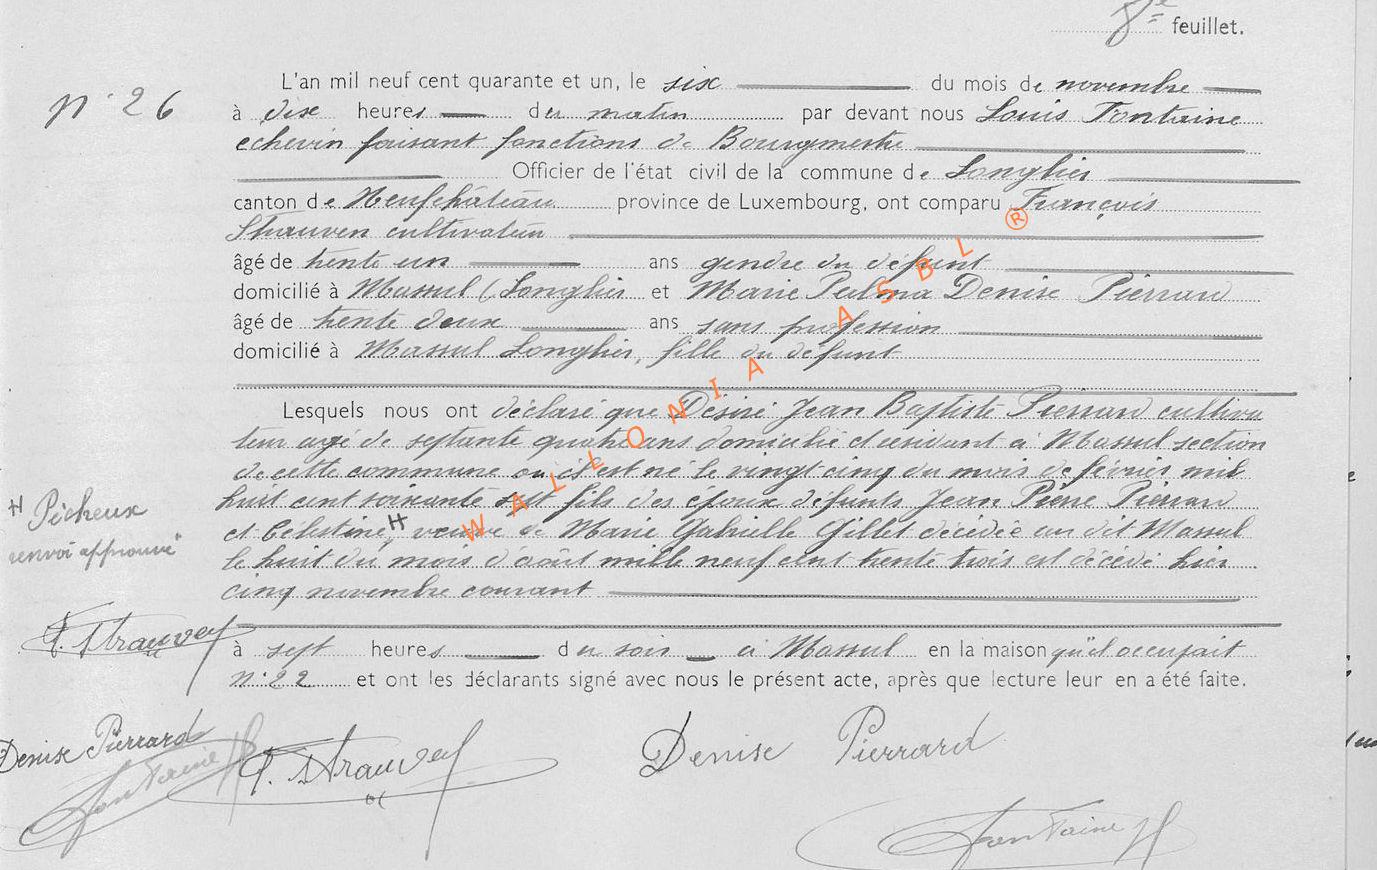 8e feuillet.
n° 26
L'an mil neuf cent quarante et un, le six du mois de novembre
à dix heures du matin par devant nous Louis Fontaine
echevin faisant fonctions de Bourgmestre
Officier de l'état civil de la commune de Longlier
canton de Neufchâteau province de Luxembourg, ont comparu François
Strauven cultivateur
âgé de trente un ans gendre du défunt
domicilié à Massul (Longlier et Marie Palma Denise Pierrard
âgé de trente deux ans sans profession
domicilié à Massul Longlier, fille du défunt
Lesquels nous ont déclaré que Désiré Jean Baptiste Pierrard cultiva
teur agé de septante quatre ans domicilié et résidant à Massul section
de cette commune où il est né le vingt cinq du mois de février mil
huit cent soixante sept fils des époux défunts Jean Pierre Pierrard
et Célestine H veuve de Marie Gabrielle Gillet décédée au dit Massul
le huit du mois d'août mille neuf cent trente trois est décédé hier
cinq novembre courant
H Picheux
renvoi approuvé
F. Strauven
à sept heures du soir à Massul en la maison qu'il occupait
N° 22 et ont les déclarants signé avec nous le présent acte, après que lecture leur en a été faite.
Denise Pierrard
Fontaine
F. Strauven
Denise Pierrard
Fontaine
WALLONIA ASBL ®